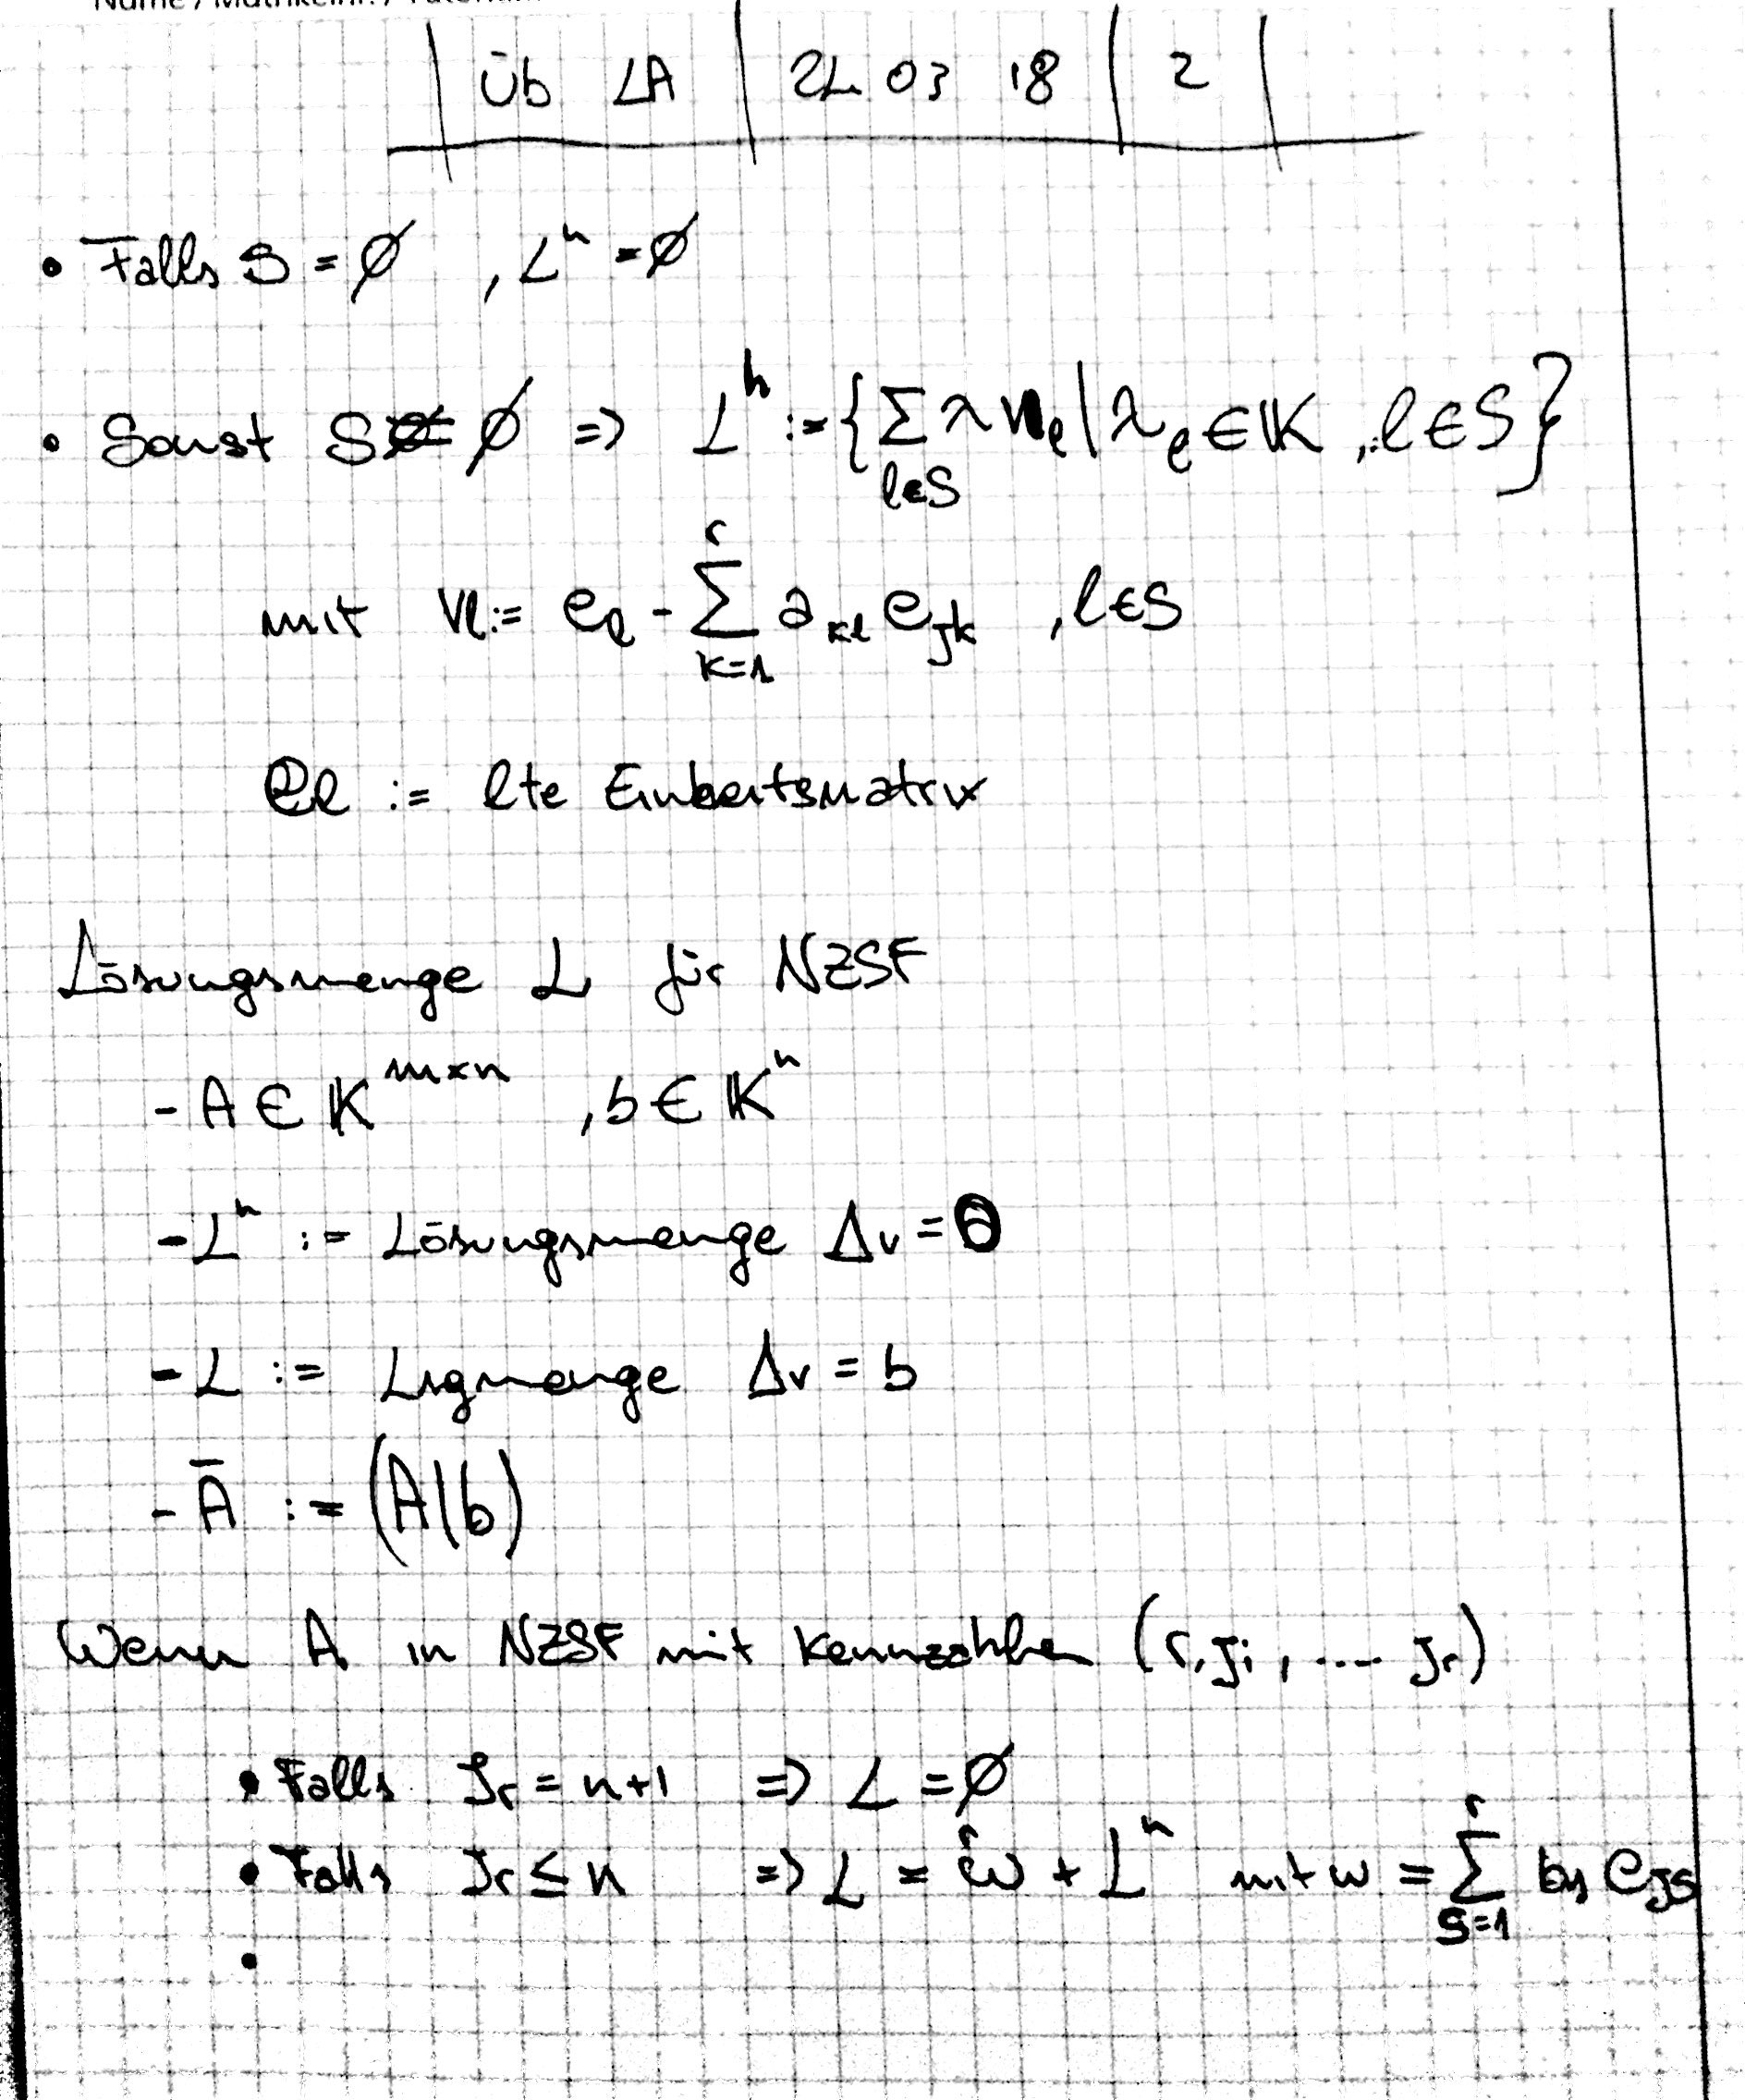 Üb LA | 24 03 18 | 2
• Falls S = ∅ , Lʰ = ∅
• Sonst S ≠ ∅ => Lʰ := { ∑_{l∈S} λ v_l | λ_l ∈ K , l ∈ S }
mit v_l := e_l - ∑_{k=1}^{r} a_{kl} e_{jk} , l ∈ S
e_l := lte Einheitsmatrix
Lösungsmenge L für NZSF
- A ∈ K^{m×n} , b ∈ Kⁿ
- Lʰ := Lösungsmenge Av = 0
- L := Lsgmenge Av = b
- Ā := (A|b)
Wenn A in NZSF mit Kennzahlen (r, j_i, .... j_r)
• Falls J_r = n+1 => L = ∅
• Falls J_r ≤ n => L = w + Lʰ mit w = ∑_{s=1}^{r} b_s e_{js}
•